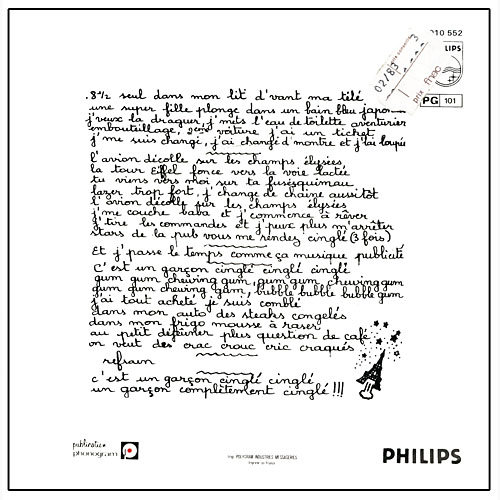 010 552
LIPS
prix fnac
02/83 3
PG 101
. 8H1/2 seul dans mon lit d'vant ma télé
une super fille plonge dans un bain bleu japon
j'veux la draguer, j'mets l'eau de toilette aventurier
embouteillage, 2ème voiture j'ai un ticket
j'me suis changé, j'ai changé d'montre et j'l'ai loupée
l'avion décolle sur les champs élysées
la tour Eiffel fonce vers la voie lactée
tu viens vers moi sur ta fusésquimau
lazer trop fort, j'change de chaine aussitot
l'avion décolle sur les champs élysées
j'me couche baba et j'commence à rêver
j'tire les commandes et j'peux plus m'arrêter
stars de la pub vous me rendez cinglé (3 fois)
Et j'passe le temps comme ça musique publicité
C'est un garçon cinglé cinglé cinglé
gum gum chewing gum, gum gum, chewing gum
gum gum chewing gum, bubble bubble bubble gum
j'ai tout acheté je suis comblé
dans mon auto des steaks congelés
dans mon frigo mousse à raser
au petit déjeuner plus question de café
on veut des crac crouc cric craqués
refrain
c'est un garçon cinglé cinglé
un garçon complètement cinglé !!!
publication
phonogram
Imp. POLYGRAM INDUSTRIES MESSAGERIES
Imprimé en France
PHILIPS